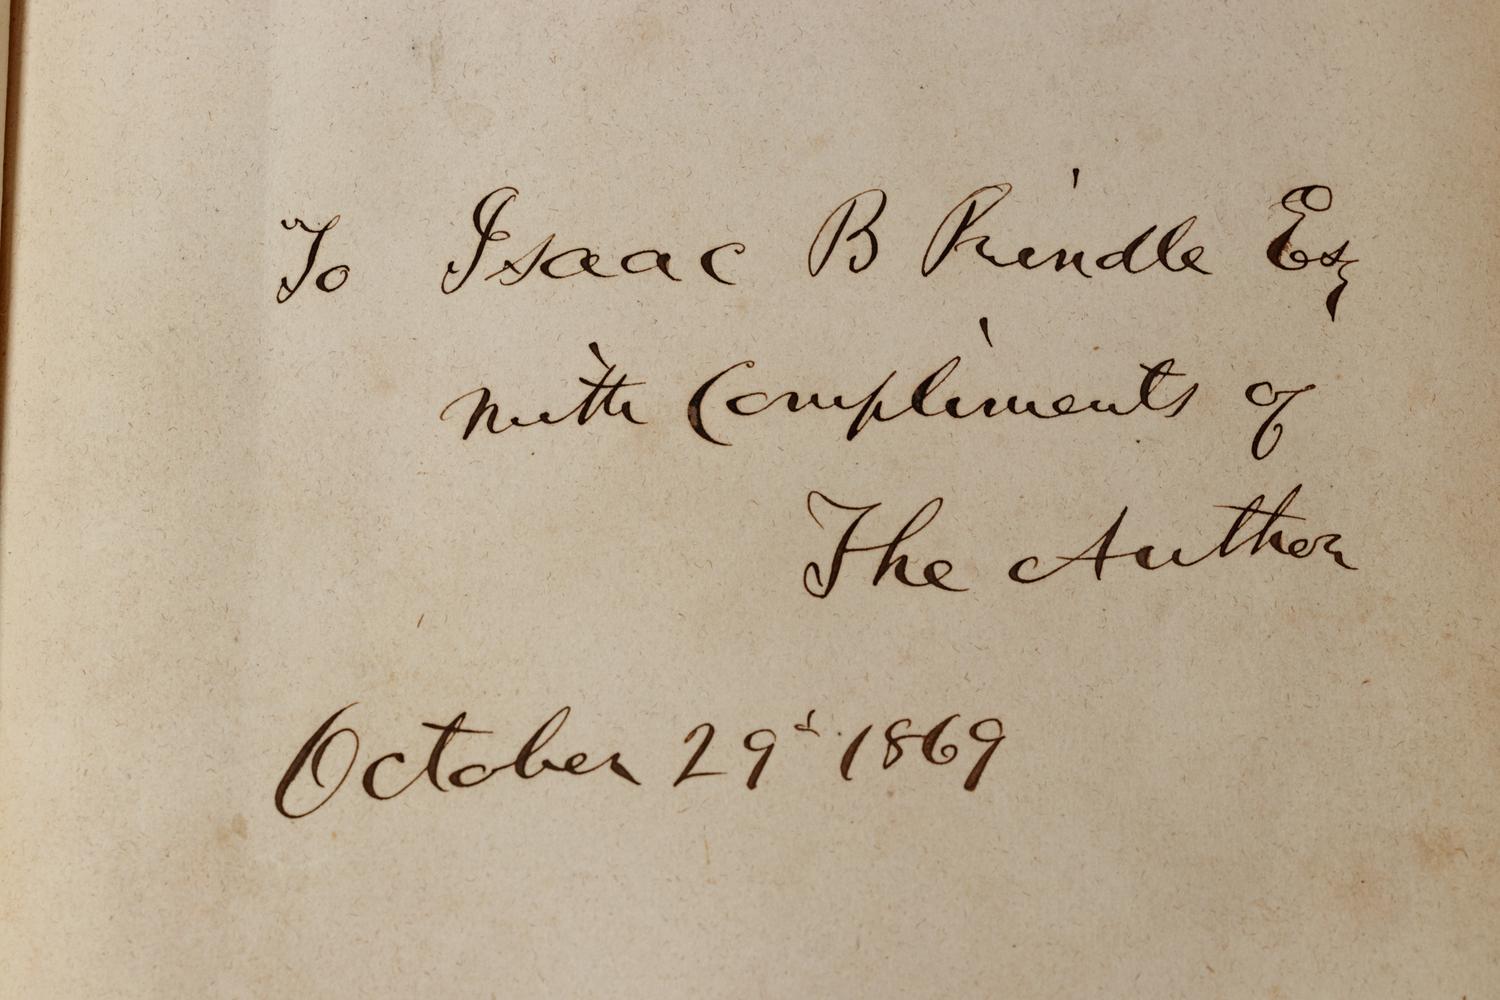 To Isaac B Prindle Esq
with Compliments of
The Author
October 29th 1869